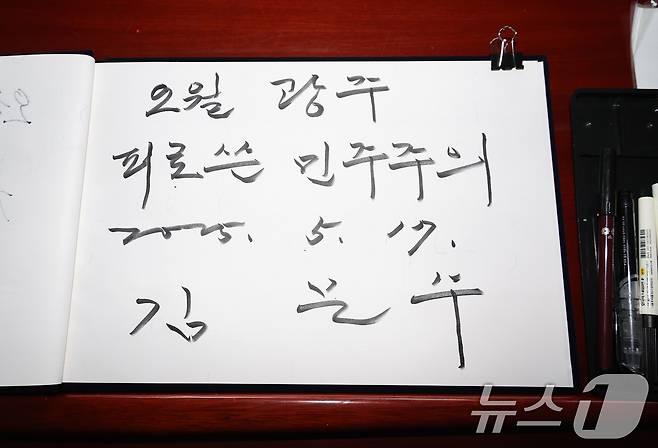 오월 광주
피로쓴 민주주의
2025. 5. 17.
김 문 수
뉴스1